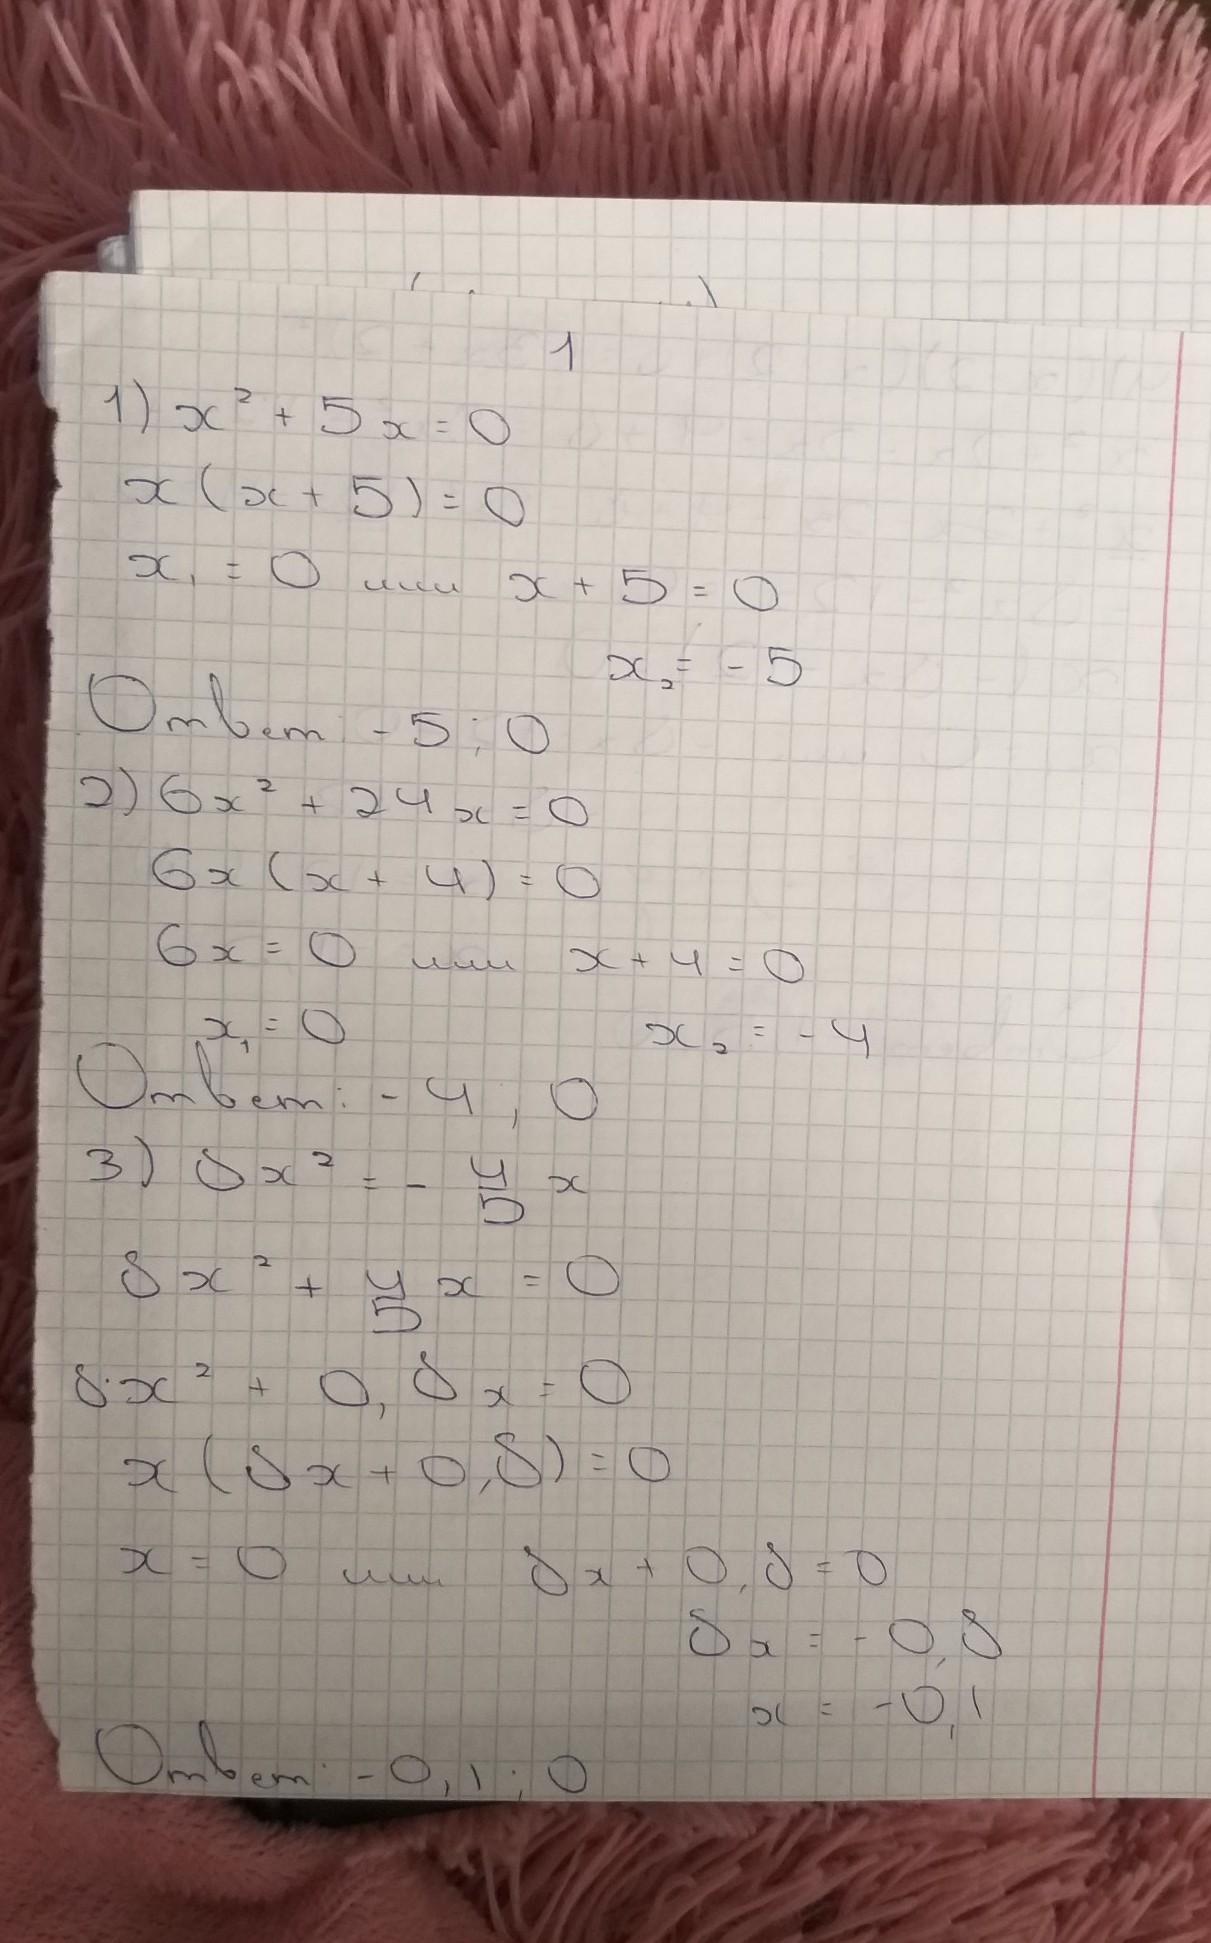 1
1) x² + 5x = 0
x(x + 5) = 0
x₁ = 0 или x + 5 = 0
x₂ = - 5
Ответ: - 5; 0
2) 6x² + 24x = 0
6x(x + 4) = 0
6x = 0 или x + 4 = 0
x₁ = 0 x₂ = - 4
Ответ: - 4; 0
3) 8x² = - 4/5 x
8x² + 4/5 x = 0
8x² + 0,8x = 0
x(8x + 0,8) = 0
x = 0 или 8x + 0,8 = 0
8x = - 0,8
x = -0,1
Ответ: - 0,1; 0